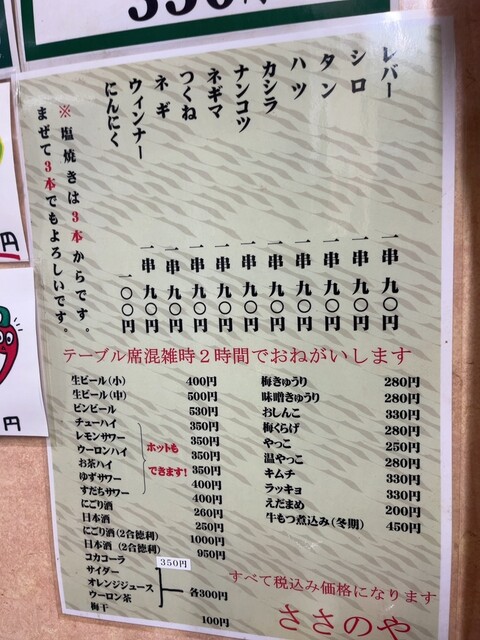 レバー 一串 九〇円
シロ 一串 九〇円
タン 一串 九〇円
ハツ 一串 九〇円
カシラ 一串 九〇円
ナンコツ 一串 九〇円
ネギマ 一串 九〇円
つくね 一串 九〇円
ネギ 一串 九〇円
ウィンナー 一串 九〇円
にんにく 一〇〇円
※塩焼きは3本からです。
まぜて3本でもよろしいです。
テーブル席混雑時2時間でおねがいします
生ビール(小) 400円
生ビール(中) 500円
ビンビール 530円
チューハイ 350円
レモンサワー 350円
ウーロンハイ 350円
お茶ハイ 350円
ゆずサワー 400円
すだちサワー 400円
ホットも
できます!
にごり酒 260円
日本酒 250円
にごり酒(2合徳利) 1000円
日本酒(2合徳利) 950円
コカコーラ 350円
サイダー
オレンジジュース 各300円
ウーロン茶
梅干 100円
梅きゅうり 280円
味噌きゅうり 280円
おしんこ 330円
梅くらげ 280円
やっこ 250円
温やっこ 280円
キムチ 330円
ラッキョ 330円
えだまめ 200円
牛もつ煮込み(冬期) 450円
すべて税込み価格になります
ささのや
円
円